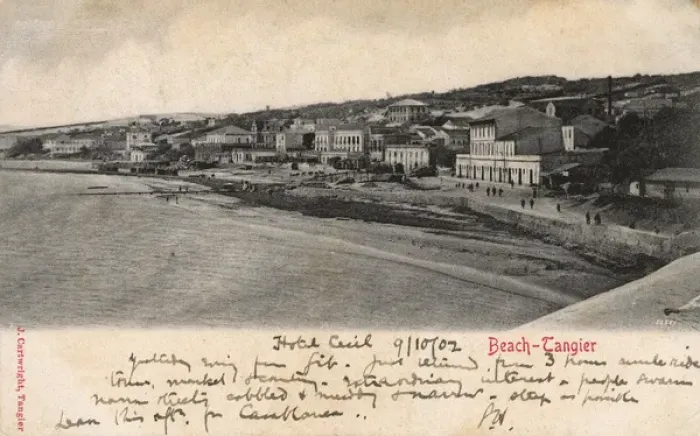 Hotel Cecil 9/10/02
Beach-Tangier
J. Cartwright, Tangier
Yesterday from Gib. Just returned from 3 hours mule ride
town, market & country. extraordinary interest - people swarm
narrow streets cobbled & muddy & narrow - steep as possible
Leave this aft. for Casablanca..